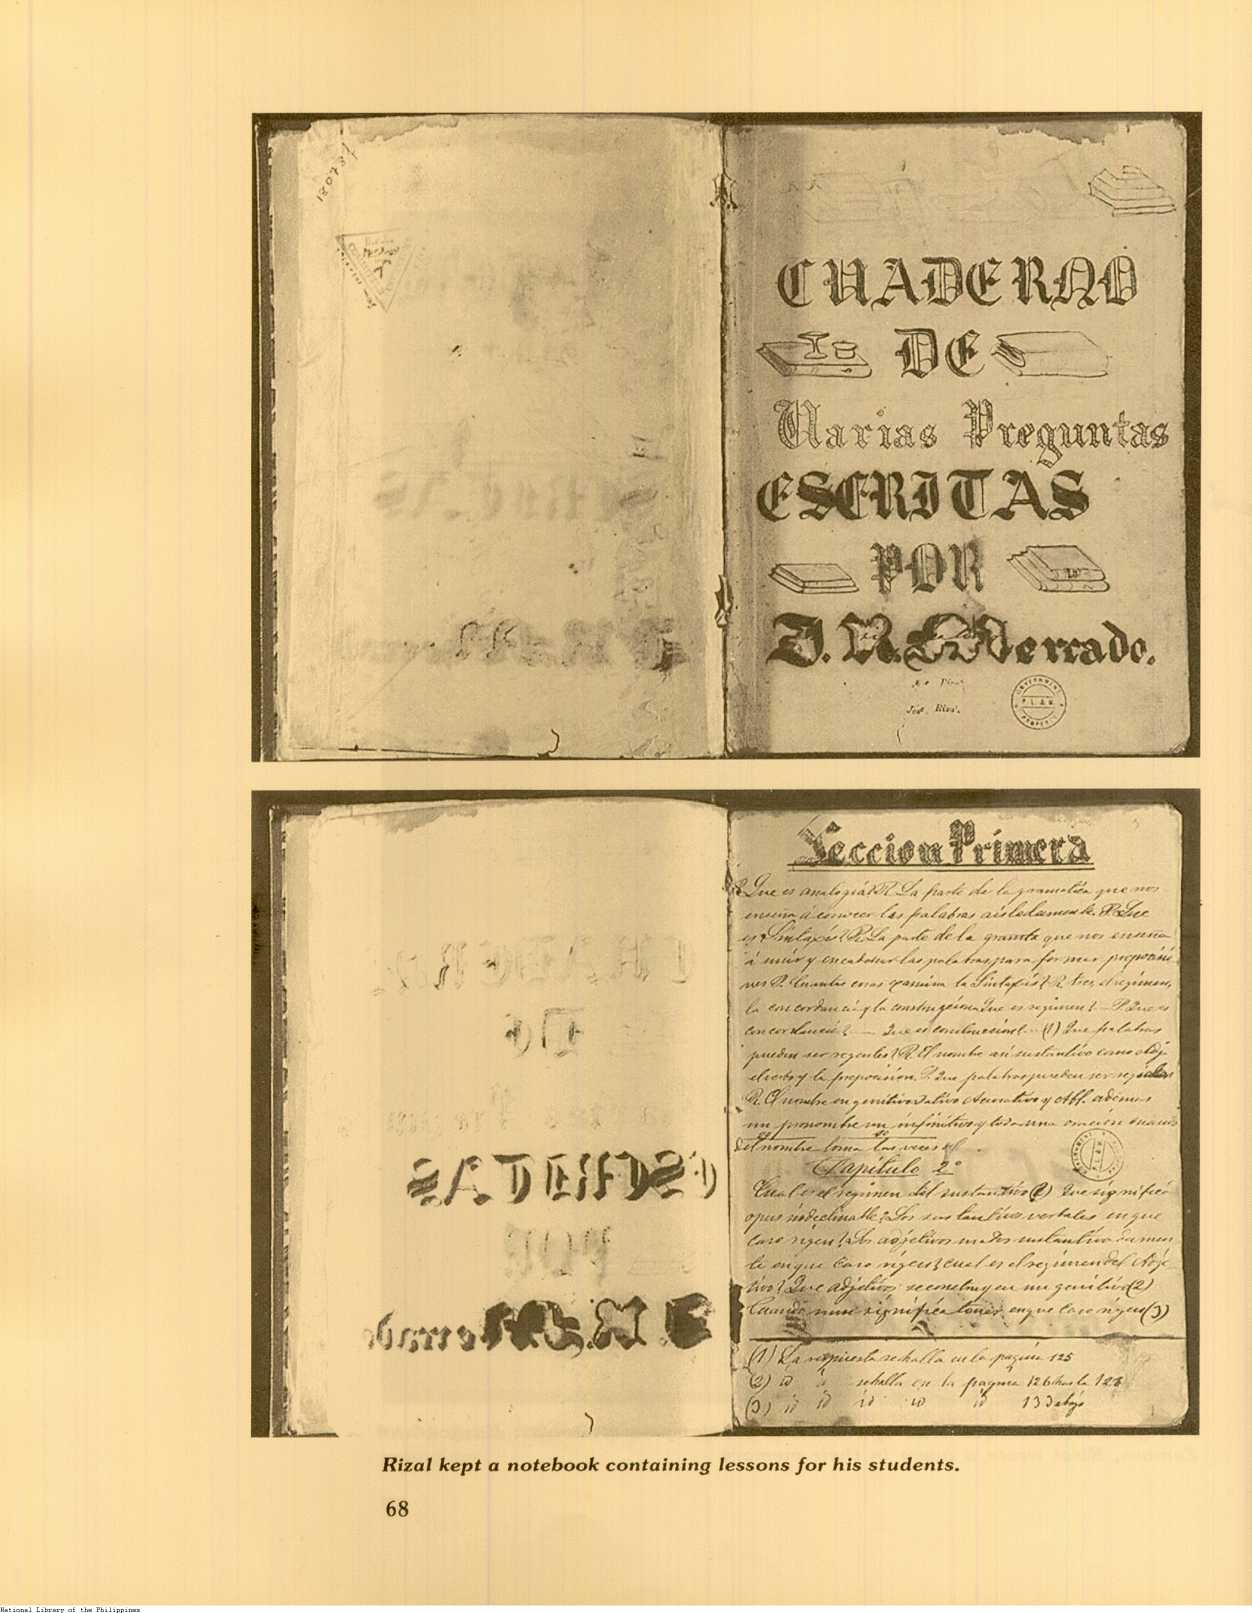 CUADERNO
DE
Varias Preguntas
ESCRITAS
POR
J. R. Mercado.
José Rizal.
GOVERNMENT
PROPERTY
Leccion Primera
P. Que es analogía? R. La parte de la gramatica que nos
enseña á conocer las palabras aisladamente. P. Que
es Sintaxis? R. La parte de la gramta que nos enseña
á unir y encadenar las palabras para formar proposicio
nes P. Cuantas cosas examina la Sintaxis? R. tres, el regimen,
la concordancia y la construccion Que es regimen? — P. Que es
concordancia? — Que es construccion? — (1) Que palabras
pueden ser regentes? R. El nombre asi sustantivo como adje
el verbo y la preposicion. P. Que palabras pueden ser regidas
R. El nombre en genitivo dativo Acusativo y Abl. ademas
un pronombre un infinitivo y toda una oracion cuando
del nombre toma las veces
Capítulo 2º
Cual es el regimen del sustantivo (2) Que significa
opus indeclinable? Los sustantivos verbales en que
caso rigen? Los adjetivos usados sustantivadamen
te en que caso rigen? cual es el regimen del Adje
tivo? Que adjetivos se construyen en genitivo (2)
Cuando significa tener en que caso rigen (3)
(1) La respuesta se halla en la pagina 125
(2) id id se halla en la pagina 126 hasta 128
(3) id id id id id 133 abajo
Rizal kept a notebook containing lessons for his students.
68
National Library of the Philippines